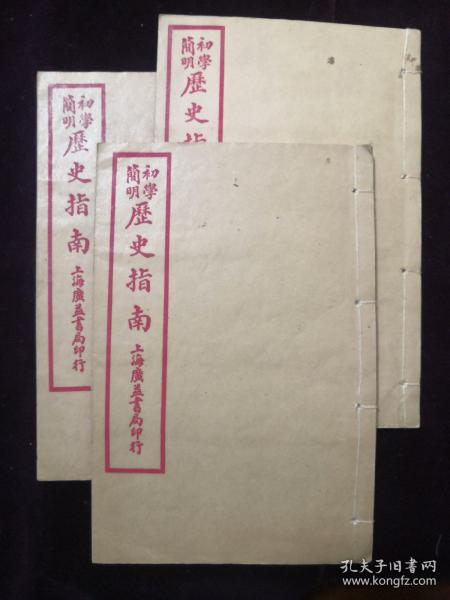 初學
簡明
歷史指
初學
簡明
歷史指南
上海廣益書局印行
初學
簡明
歷史指南
上海廣益書局印行
孔夫子旧书网
www.kongfz.com